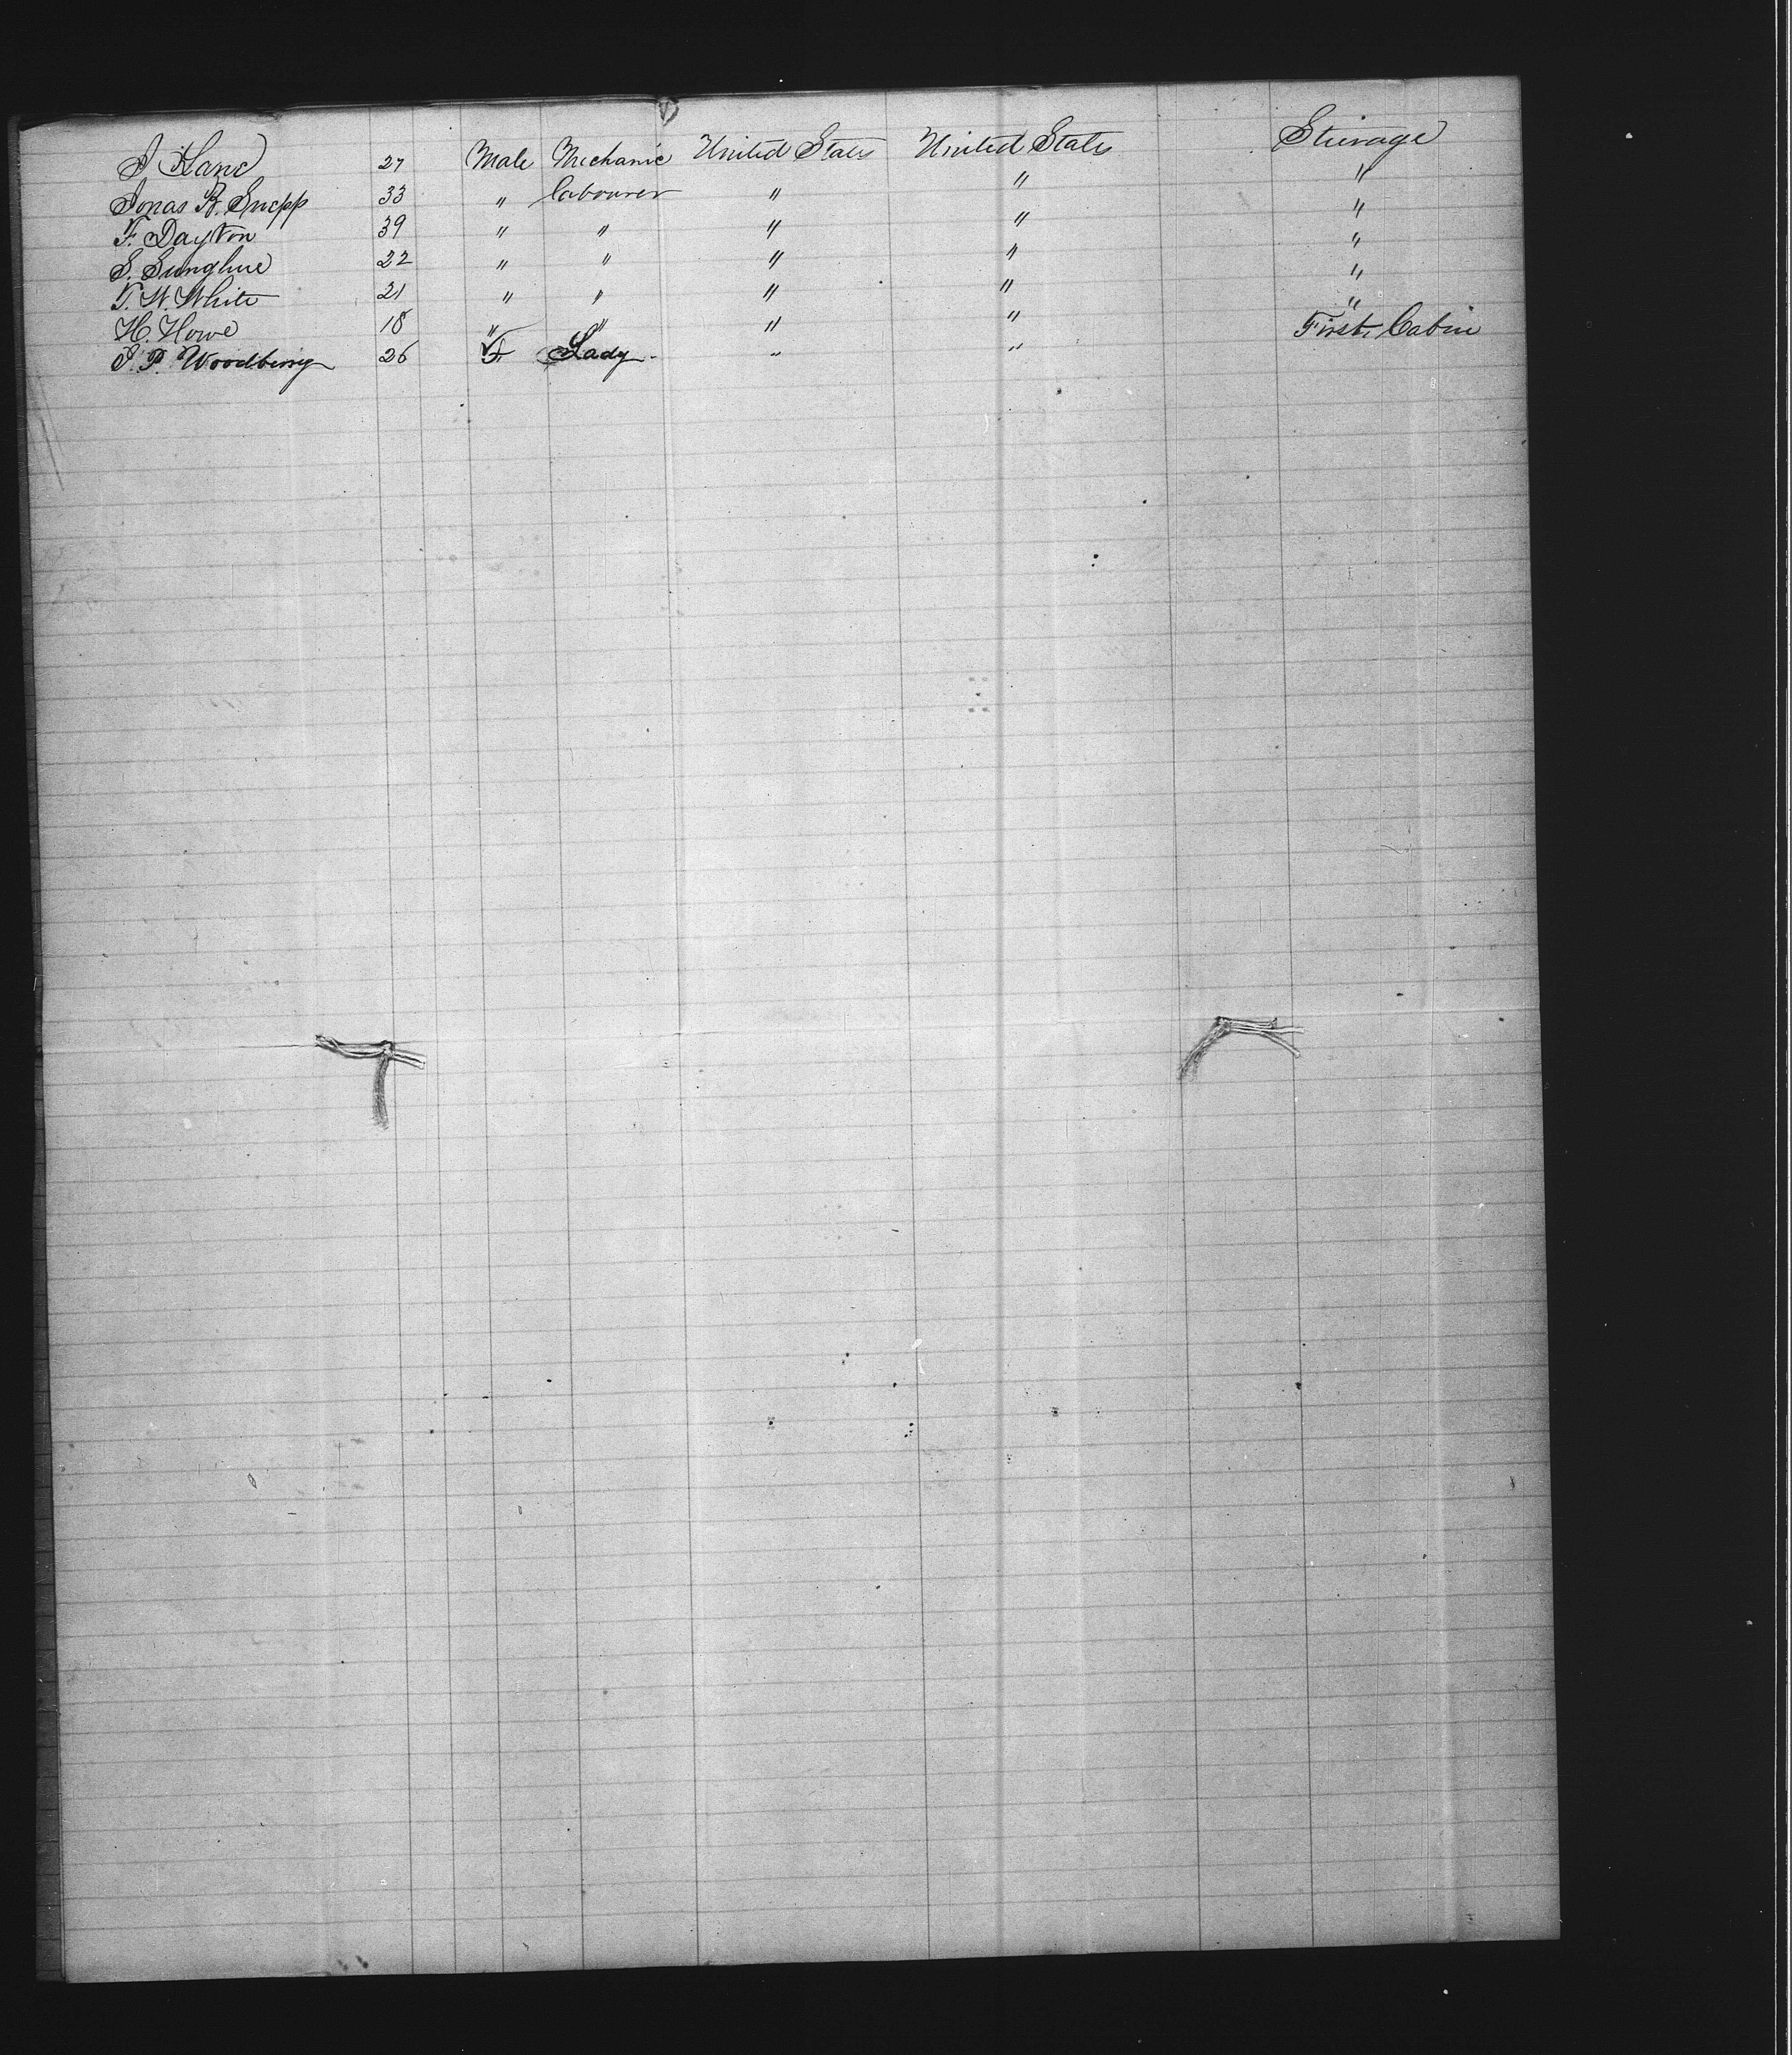 J Hane 27 Male Mechanic United States United States Steerage
Jonas B. Snepp 33 " labourer " " "
F. Dayton 39 " " " " "
S. 22 " " " " "
T. W. White 21 " " " " "
H. Howe 18 " " " " "
J. P. Woodberry 26 F Lady " " First Cabin